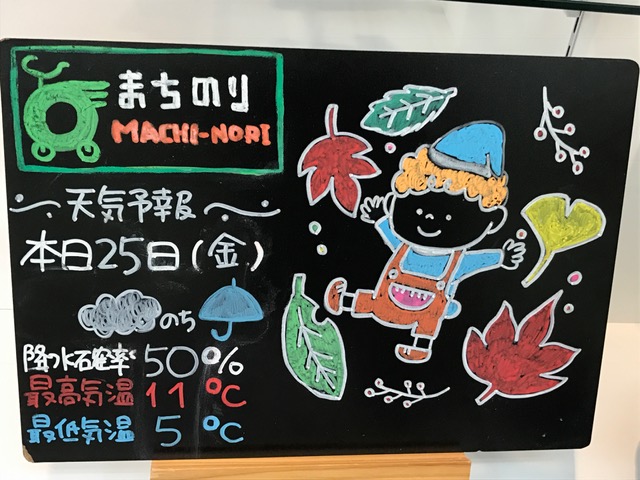 まちのり
MACHI-NORI
天気予報
本日25日(金)
のち
降水確率 50%
最高気温 11℃
最低気温 5℃